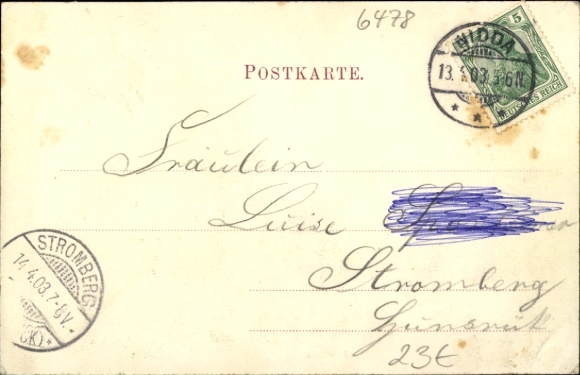 6478
POSTKARTE.
5
DEUTSCHES REICH
NIDDA
13.4.03.5-6N
Fräulein
Luise
Stromberg
Hunsrük
23€
STROMBERG
14.4.03.7-8V.
CK)